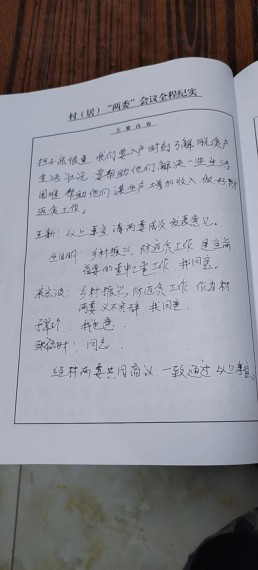 村（居）“两委”会议全程纪实
主要内容
担子虽很重 我们要入户时刻了解脱贫户
生活状况 要帮助他们解决一些生活
困难 帮助他们谋生产 增加收入 做好防
返贫工作。
王新：以上事宜 请两委成员发表意见。
乡村振兴，防返贫工作 是当前
首要的重中之重工作 我同意。
乡村振兴，防返贫工作 作为村
两委义不容辞 我同意。
我也同意。
同意。
经村两委共同商议 一致通过 以上事宜。